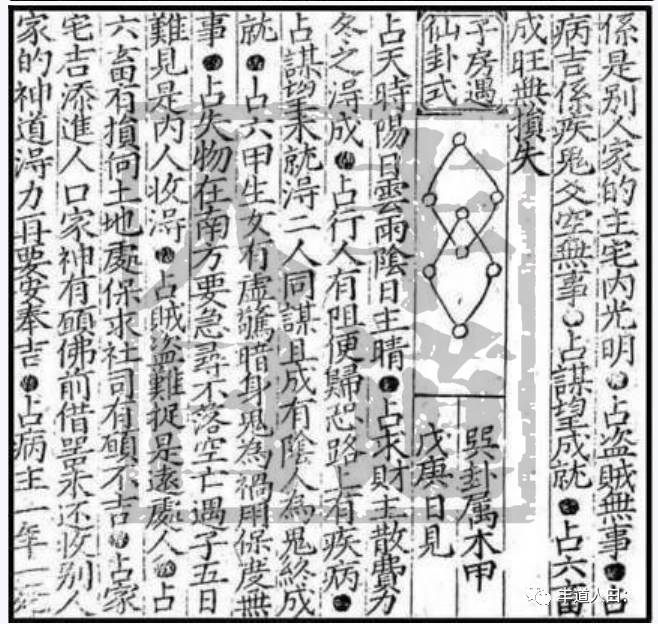 係是别人家的主宅内光明●占盗賊無事●占
病吉係疾鬼爻空無事○占謀望成就●占六畜
成旺無損失
子房遇
仙卦式
巽卦属木甲
戊庚日見
占天時陽日雲雨陰日主晴●占求財主散費力
冬之淂成●占行人有阻便歸恐路上有疾病●
占謀望未就淂二人同謀且成有陰人為鬼終成
就●占六甲生女有虚驚暗身鬼為禍用保度無
事●占失物在南方要急尋不落空亡遇子五日
難見是内人收淂●占賊盗難捉是遠處人●占
六畜有損何土地處保求社司有願不吉●占家
宅吉添進人口家神有願佛前借噐未还收别人
家的神道淂力再要安奉吉●占病主一年一
手道人曰：